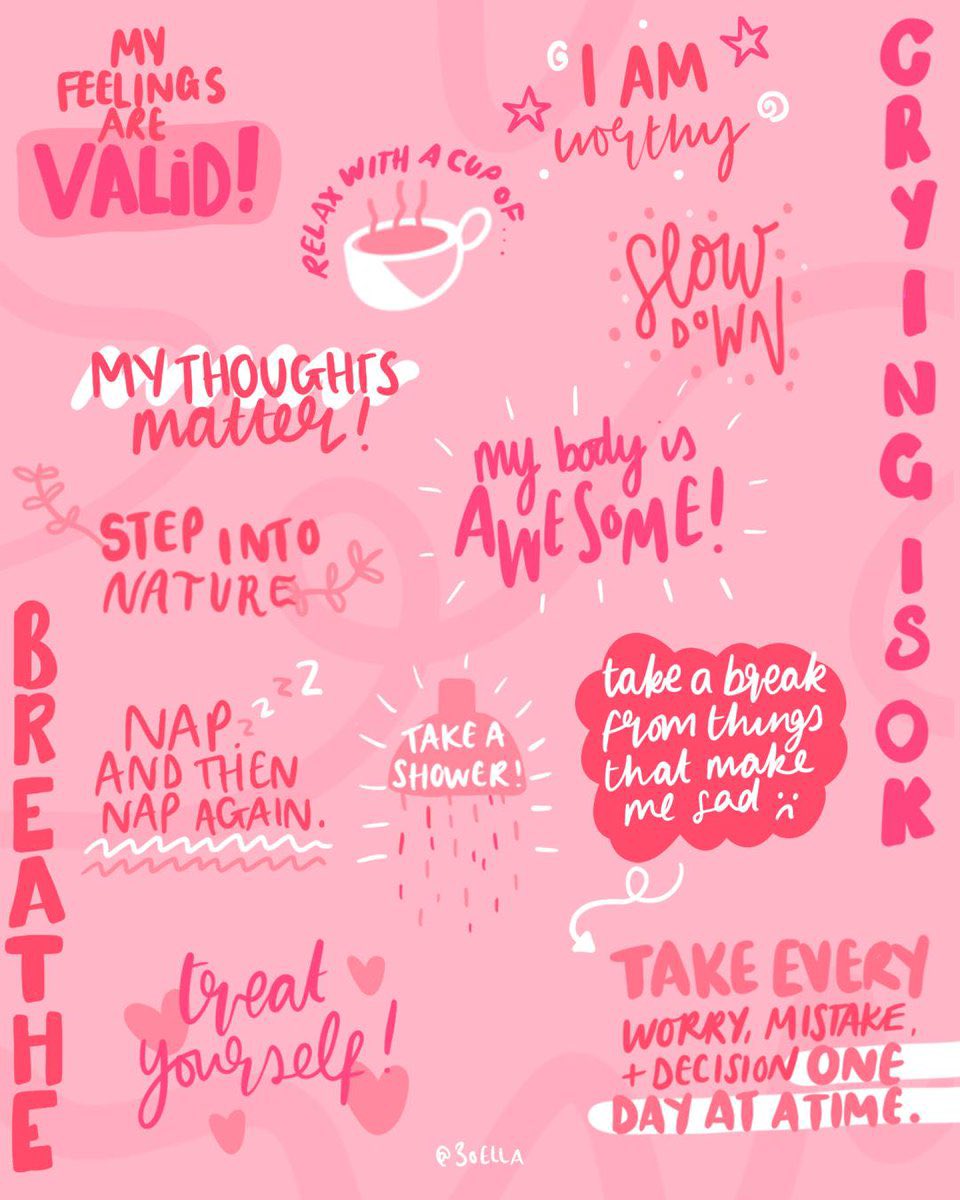 MY
FEELINGS
ARE
VALiD!
I AM
worthy
RELAX WITH A CUP OF....
Slow
DOWN
MY THOUGHTS
matter!
my body is
AWESOME!
STEP INTO
NATURE
NAP.
zzzZ
AND THEN
NAP AGAIN.
TAKE A
SHOWER!
take a break
from things
that make
me sad :(
treat
yourself!
TAKE EVERY
WORRY, MISTAKE,
+ DECISION ONE
DAY AT A TIME.
BREATHE
CRYING IS OK
@30ELLA